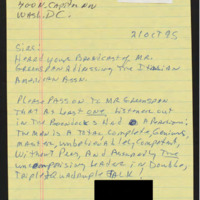 400 N. Capitol NW
Wash. D.C.
21 Oct 95
Sirs:
Heard your Broadcast of Mr.
Greenspan addressing the Italian
American Assn.
Please Pass on to Mr Greenspan
That at least one listener out
in the Boondocks Had a
The man is a Total, Complete, Genius,
master, unbelievably Competent,
Without Peer, And Assuredly The
uncompromising Leader, in Double,
Triple & Quadruple TALK!